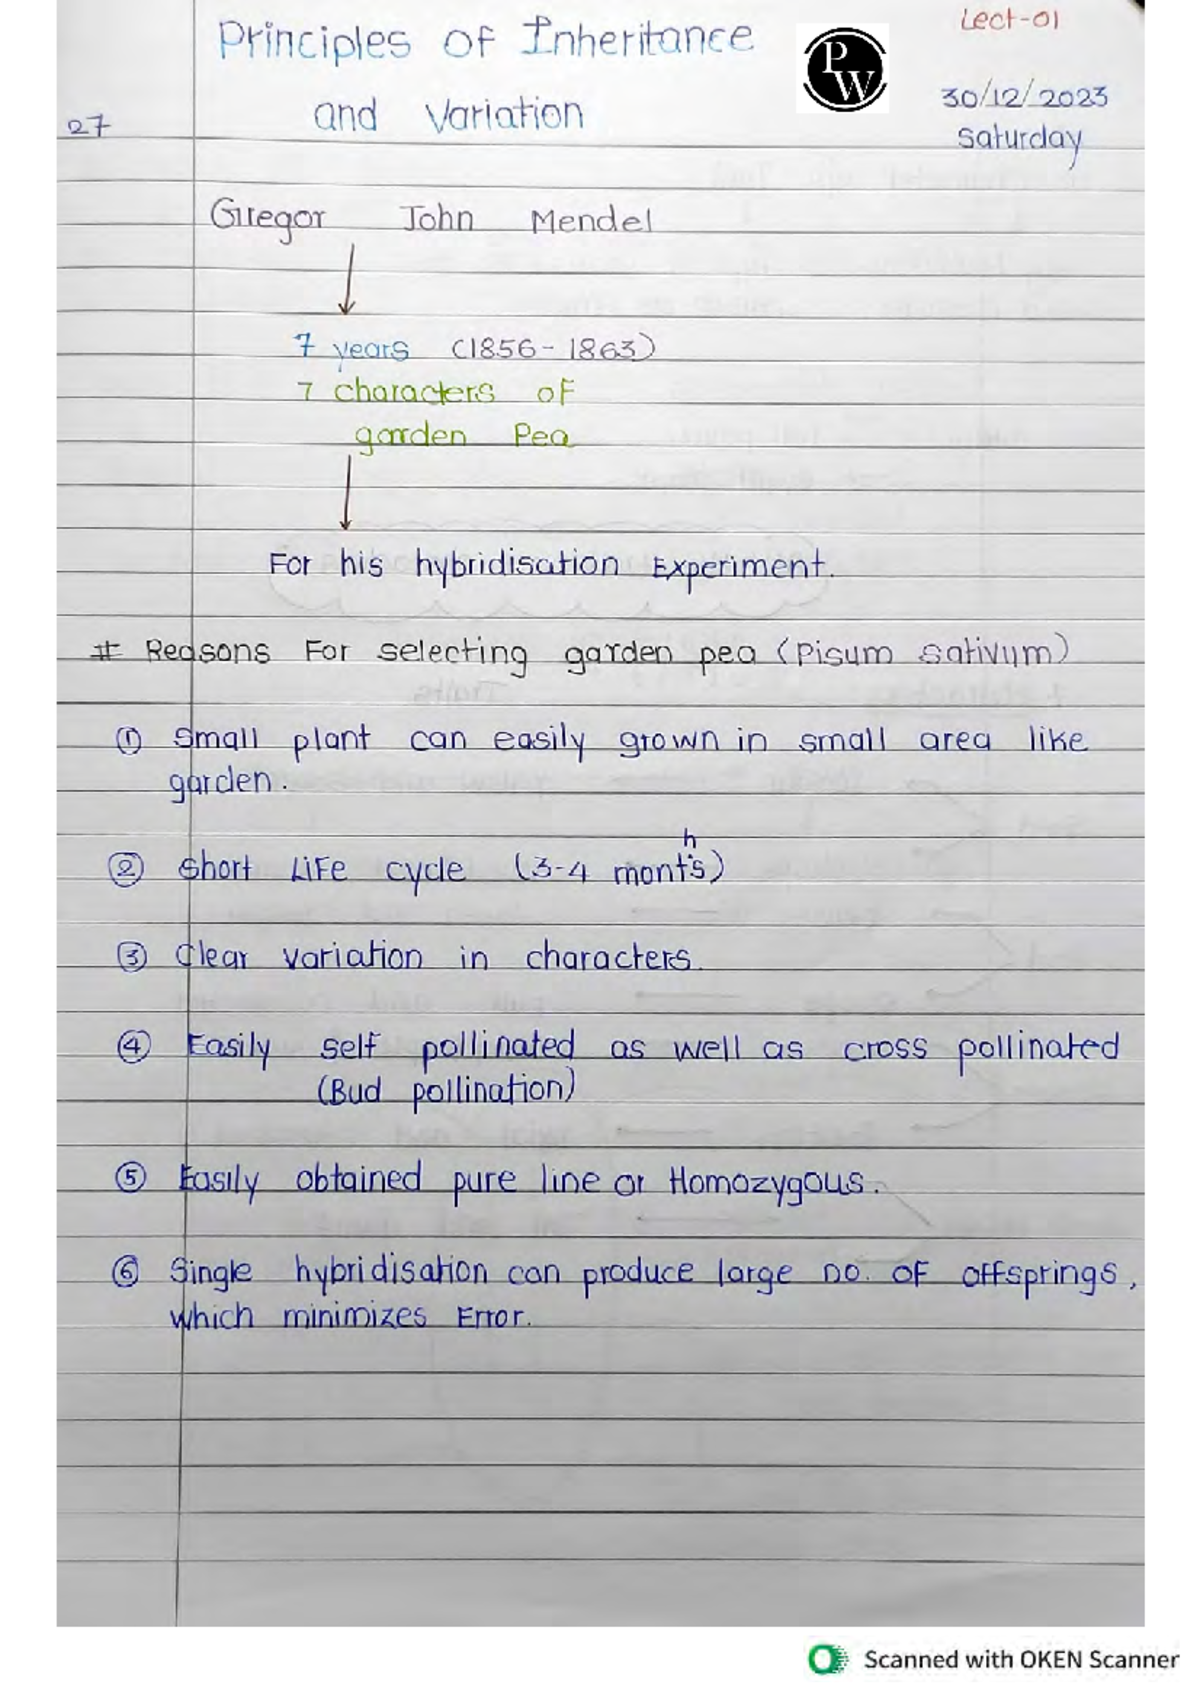 Lect-01
Principles of Inheritance
PW
30/12/2023
and Variation
27
Saturday
Gregor John Mendel
7 years (1856-1863)
7 characters of
garden Pea
For his hybridisation Experiment.
# Reasons For selecting garden pea (Pisum sativum)
① Small plant can easily grown in small area like
garden.
② Short Life cycle (3-4 months)
③ Clear variation in characters.
④ Easily self pollinated as well as cross pollinated
(Bud pollination)
⑤ Easily obtained pure line or Homozygous.
⑥ Single hybridisation can produce large no. of offsprings,
which minimizes Error.
Scanned with OKEN Scanner